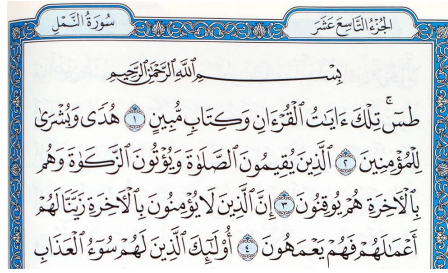 الجزء التاسع عشر
سورة النمل
بِسْمِ اللَّهِ الرَّحْمَٰنِ الرَّحِيمِ
طسٓ ۚ تِلْكَ ءَايَٰتُ ٱلْقُرْءَانِ وَكِتَابٍ مُّبِينٍ ١ هُدًى وَبُشْرَىٰ
لِلْمُؤْمِنِينَ ٢ ٱلَّذِينَ يُقِيمُونَ ٱلصَّلَوٰةَ وَيُؤْتُونَ ٱلزَّكَوٰةَ وَهُم
بِٱلْءَاخِرَةِ هُمْ يُوقِنُونَ ٣ إِنَّ ٱلَّذِينَ لَا يُؤْمِنُونَ بِٱلْءَاخِرَةِ زَيَّنَّا لَهُمْ
أَعْمَٰلَهُمْ فَهُمْ يَعْمَهُونَ ٤ أُو۟لَٰٓئِكَ ٱلَّذِينَ لَهُمْ سُوٓءُ ٱلْعَذَابِ